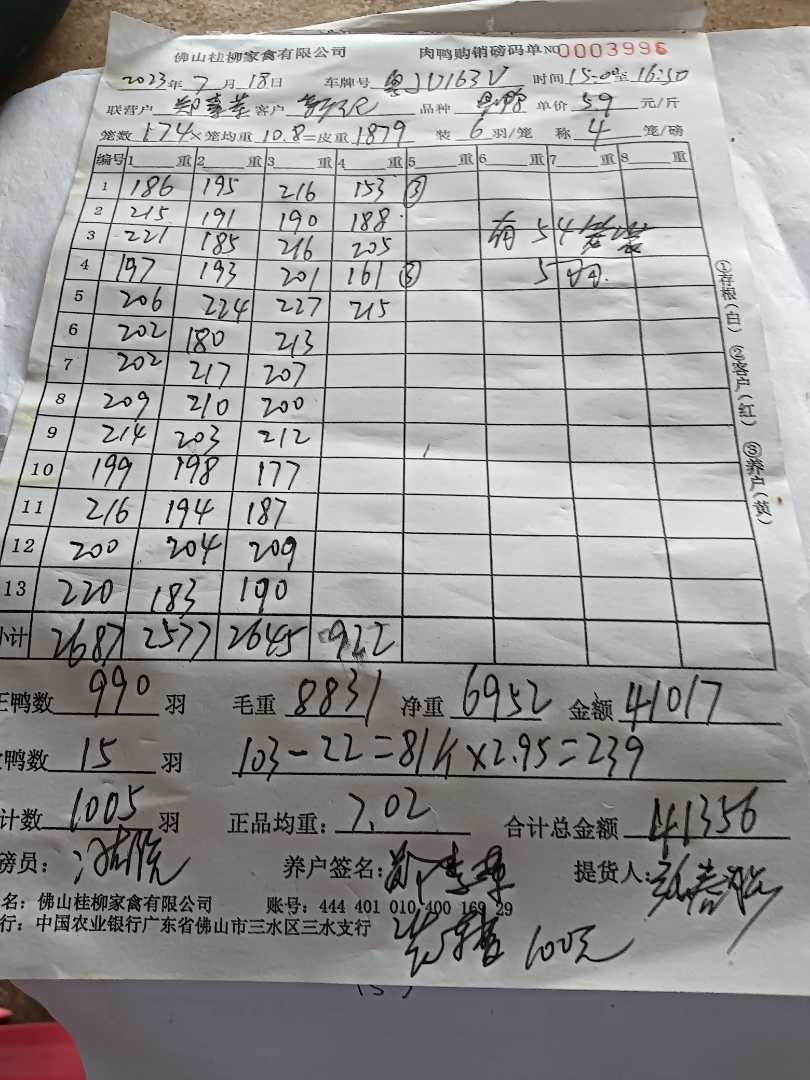 佛山桂柳家禽有限公司 肉鸭购销磅码单 NO 0003996
2023年7月18日 车牌号 粤JU163V 时间 15:00至16:50
联营户 郑 客户 品种 单价 59 元/斤
笼数 174×笼均重 10.8=皮重 1879 装 6 羽/笼 称 4 笼/磅
编号 1 重 2 重 3 重 4 重 5 重 6 重 7 重 8 重
1 186 195 216 153 ③
2 215 191 190 188
3 221 185 216 205 有54笼装
4 197 193 201 161 ③ 5只.
5 206 224 227 215
6 202 180 213
7 202 217 207
8 209 210 200
9 214 203 212
10 199 198 177
11 216 194 187
12 200 204 209
13 220 183 190
小计 2687 2577 2645 922
正鸭数 990 羽 毛重 8831 净重 6952 金额 41017
鸭数 15 羽 103-22=81斤×2.95=239
计数 1005 羽 正品均重: 7.02 合计总金额 41356
磅员: 养户签名: 提货人:
名: 佛山桂柳家禽有限公司 账号: 444 401 010 400 169 29
行: 中国农业银行广东省佛山市三水区三水支行
100元
①存根(白) ②客户(红) ③养户(黄)